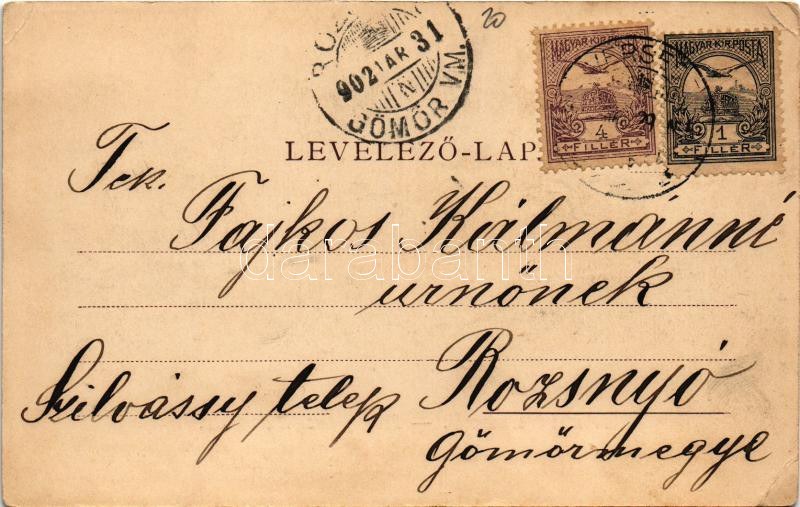 20
902 JAR 31
GÖMÖR VM.
MAGYAR·KIR·POSTA
4
FILLÉR
MAGYAR·KIR·POSTA
1
FILLÉR
LEVELEZŐ-LAP.
Tek.
Fajkos Kálmánné
urnőnek
Szilvássy telep Rozsnyó
Gömörmegye
darabanth